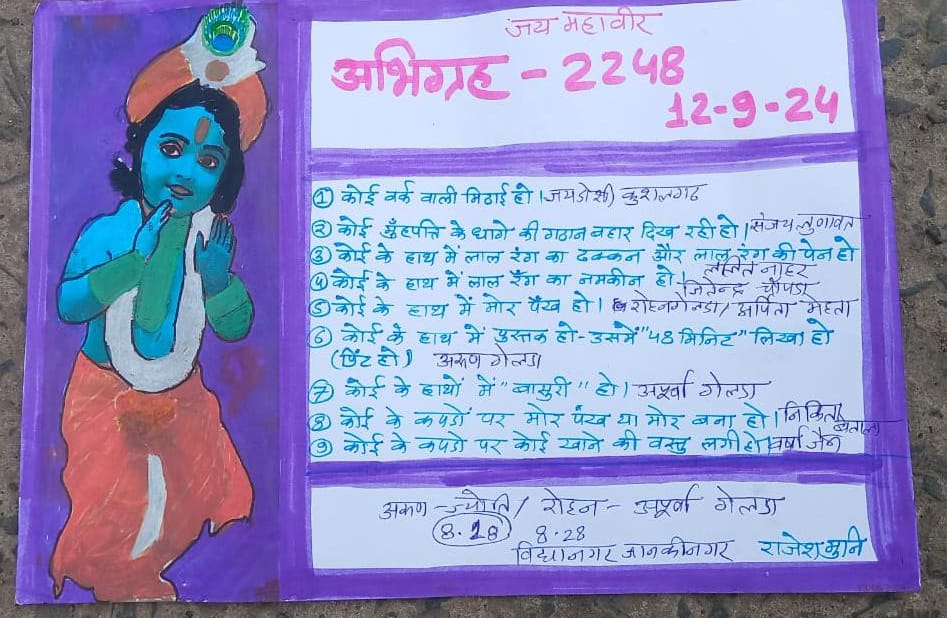 जय महावीर
अभिग्रह - 2248
12-9-24
① कोई वर्क वाली मिठाई हो। जयडोशी कुशलगढ
② कोई मुँहपत्ति के धागे की गठान बहार दिख रही हो। संजय लुणावत
③ कोई के हाथ में लाल रंग का ढक्कन और लाल रंग की पेन हो
ललित नाहर
④ कोई के हाथ में लाल रँग का नमकीन हो। जितेन्द्र चौपडा
⑤ कोई के हाथ में मोर पँख हो। रोहन गेलडा/ अर्पिता मेहता
⑥ कोई के हाथ में पुस्तक हो - उसमें "48 मिनिट" लिखा हो
(प्रिंट हो) अरूण गेलडा
⑦ कोई के हाथों में "बासुरी" हो। अपूर्वा गेलडा
⑧ कोई के कपडों पर मोर पंख या मोर बना हो। निकिता
⑨ कोई के कपडो पर कोई खाने की वस्तु लगी हो। वर्षा जैन
अरूण - ज्योति / रोहन - अपूर्वा गेलडा
8.28 8.28
विद्यानगर जानकीनगर राजेश मुनि